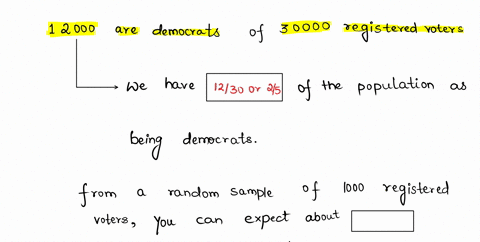 12000 are democrats of 30000 registered voters
We have 12/30 or 2/5 of the population as
being democrats.
from a random sample of 1000 registered
voters, you can expect about